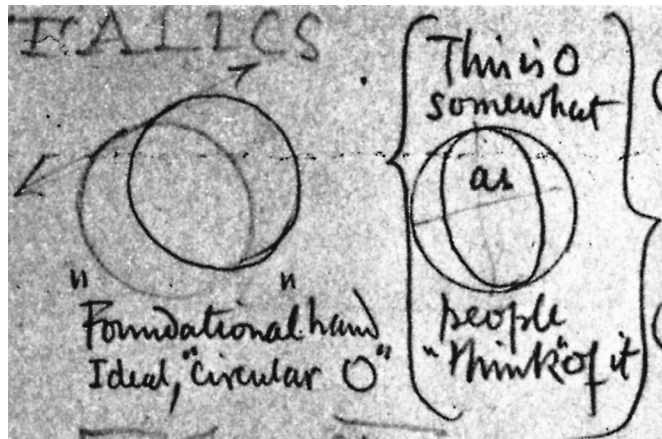 ITALICS
"Foundational" hand
Ideal, "circular O"
This is O
somewhat
as
people
"think" of it